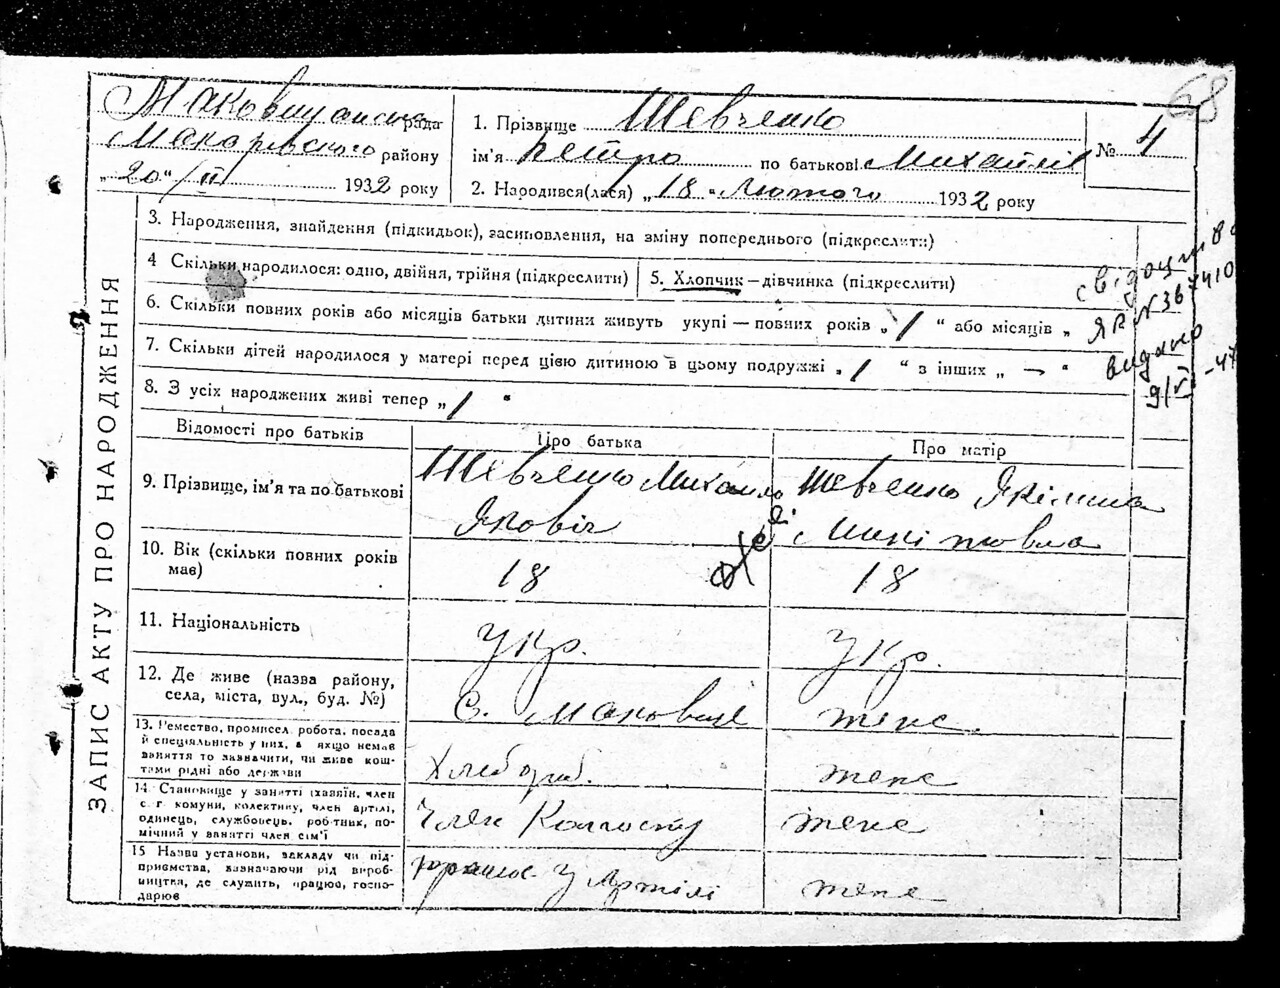 68
Маковищанська рада
Макарівського району
„20“/II 1932 року
1. Прізвище Шевченко
ім'я Петро по батькові Михайлів
№ 4
2. Народився(лася) „18“ Лютого 1932 року
ЗАПИС АКТУ ПРО НАРОДЖЕННЯ
3. Народження, знайдення (підкидьок), засиновлення, на зміну попереднього (підкреслити)
4 Скільки народилося: одно, двійня, трійня (підкреслити)
5. Хлопчик — дівчинка (підкреслити)
6. Скільки повних років або місяців батьки дитини живуть укупі — повних років „1“ або місяців „
7. Скільки дітей народилося у матері перед цією дитиною в цьому подружжі „1“ з інших „ — “
8. З усіх народжених живі тепер „1“
свідоцтво
ЯР N 367410
видано
9/VI-47
Відомості про батьків
Про батька
Про матір
9. Прізвище, ім'я та по батькові
Шевченко Михайло
Яковіч
Шевченко Якіміна
10. Вік (скільки повних років
має)
18
18
11. Національність
Укр.
Укр.
12. Де живе (назва району,
села, міста, вул., буд. №)
С. Маковище
теже
13. Ремество, промисел, робота, посада
й спеціяльність у них, а якщо немає
заняття то зазначити, чи живе кош-
тами рідні або держави
Хлебороб.
теже
14. Становище у занятті (хазяїн, член
с. г. комуни, колективу, член артілі,
одинець, службовець, робітник, по-
мічний у занятті член сім'ї
Член Колгоспу
теже
15 Назва установи, закладу чи під-
приємства, зазначаючи рід вироб-
ництва, де служить, працює, госпо-
дарює
у Артілі
теже